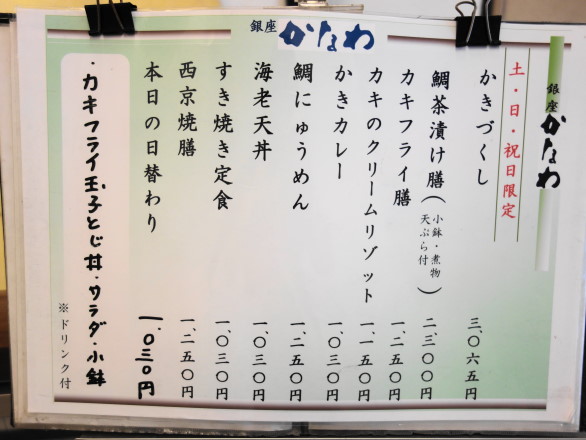 銀座 かなわ
銀座 かなわ
土・日・祝日限定
かきづくし 三、〇六五円
鯛茶漬け膳(小鉢・煮物 天ぷら付) 二、三〇〇円
カキフライ膳 一、二五〇円
カキのクリームリゾット 一、一五〇円
かきカレー 一、〇三〇円
鯛にゅうめん 一、二五〇円
海老天丼 一、〇三〇円
すき焼き定食 一、〇三〇円
西京焼膳 一、二五〇円
本日の日替わり 一、〇三〇円
・カキフライ玉子とじ丼・サラダ・小鉢
※ドリンク付